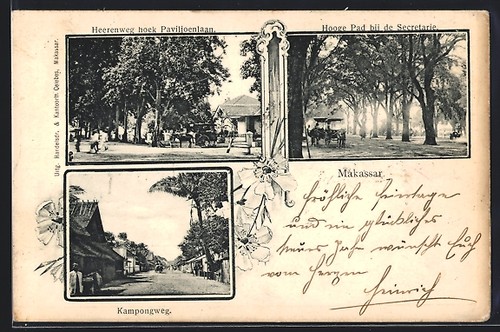 Heerenweg hoek Paviljoenlaan.
Hooge Pad bij de Secretarie.
Uitg. Handelsdr. & Kantoorin Celebes, Makassar.
Makassar
Fröhliche Feiertage
und ein glückliches
neues Jahr wünscht Euch
vom Herzen
Heinrich
Kampongweg.